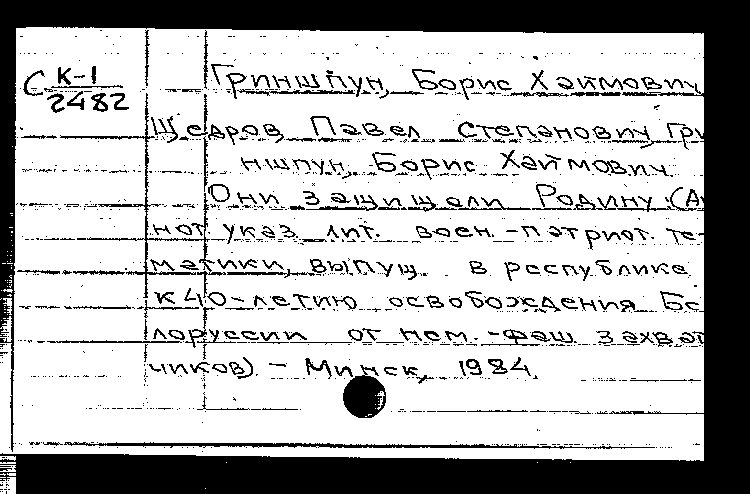 С К-1
2482
Гриншпун, Борис Хаимович
Щедров Павел Степанович, Гри
ншпун, Борис Хаймович.
Они защищали Родину. (Ан
нот. указ. лит. воен.-патриот. те-
матики, выпущ. в республике
к 40-летию освобождения Бе
лоруссии от нем.-фаш. захват
чиков) – Минск, 1984.